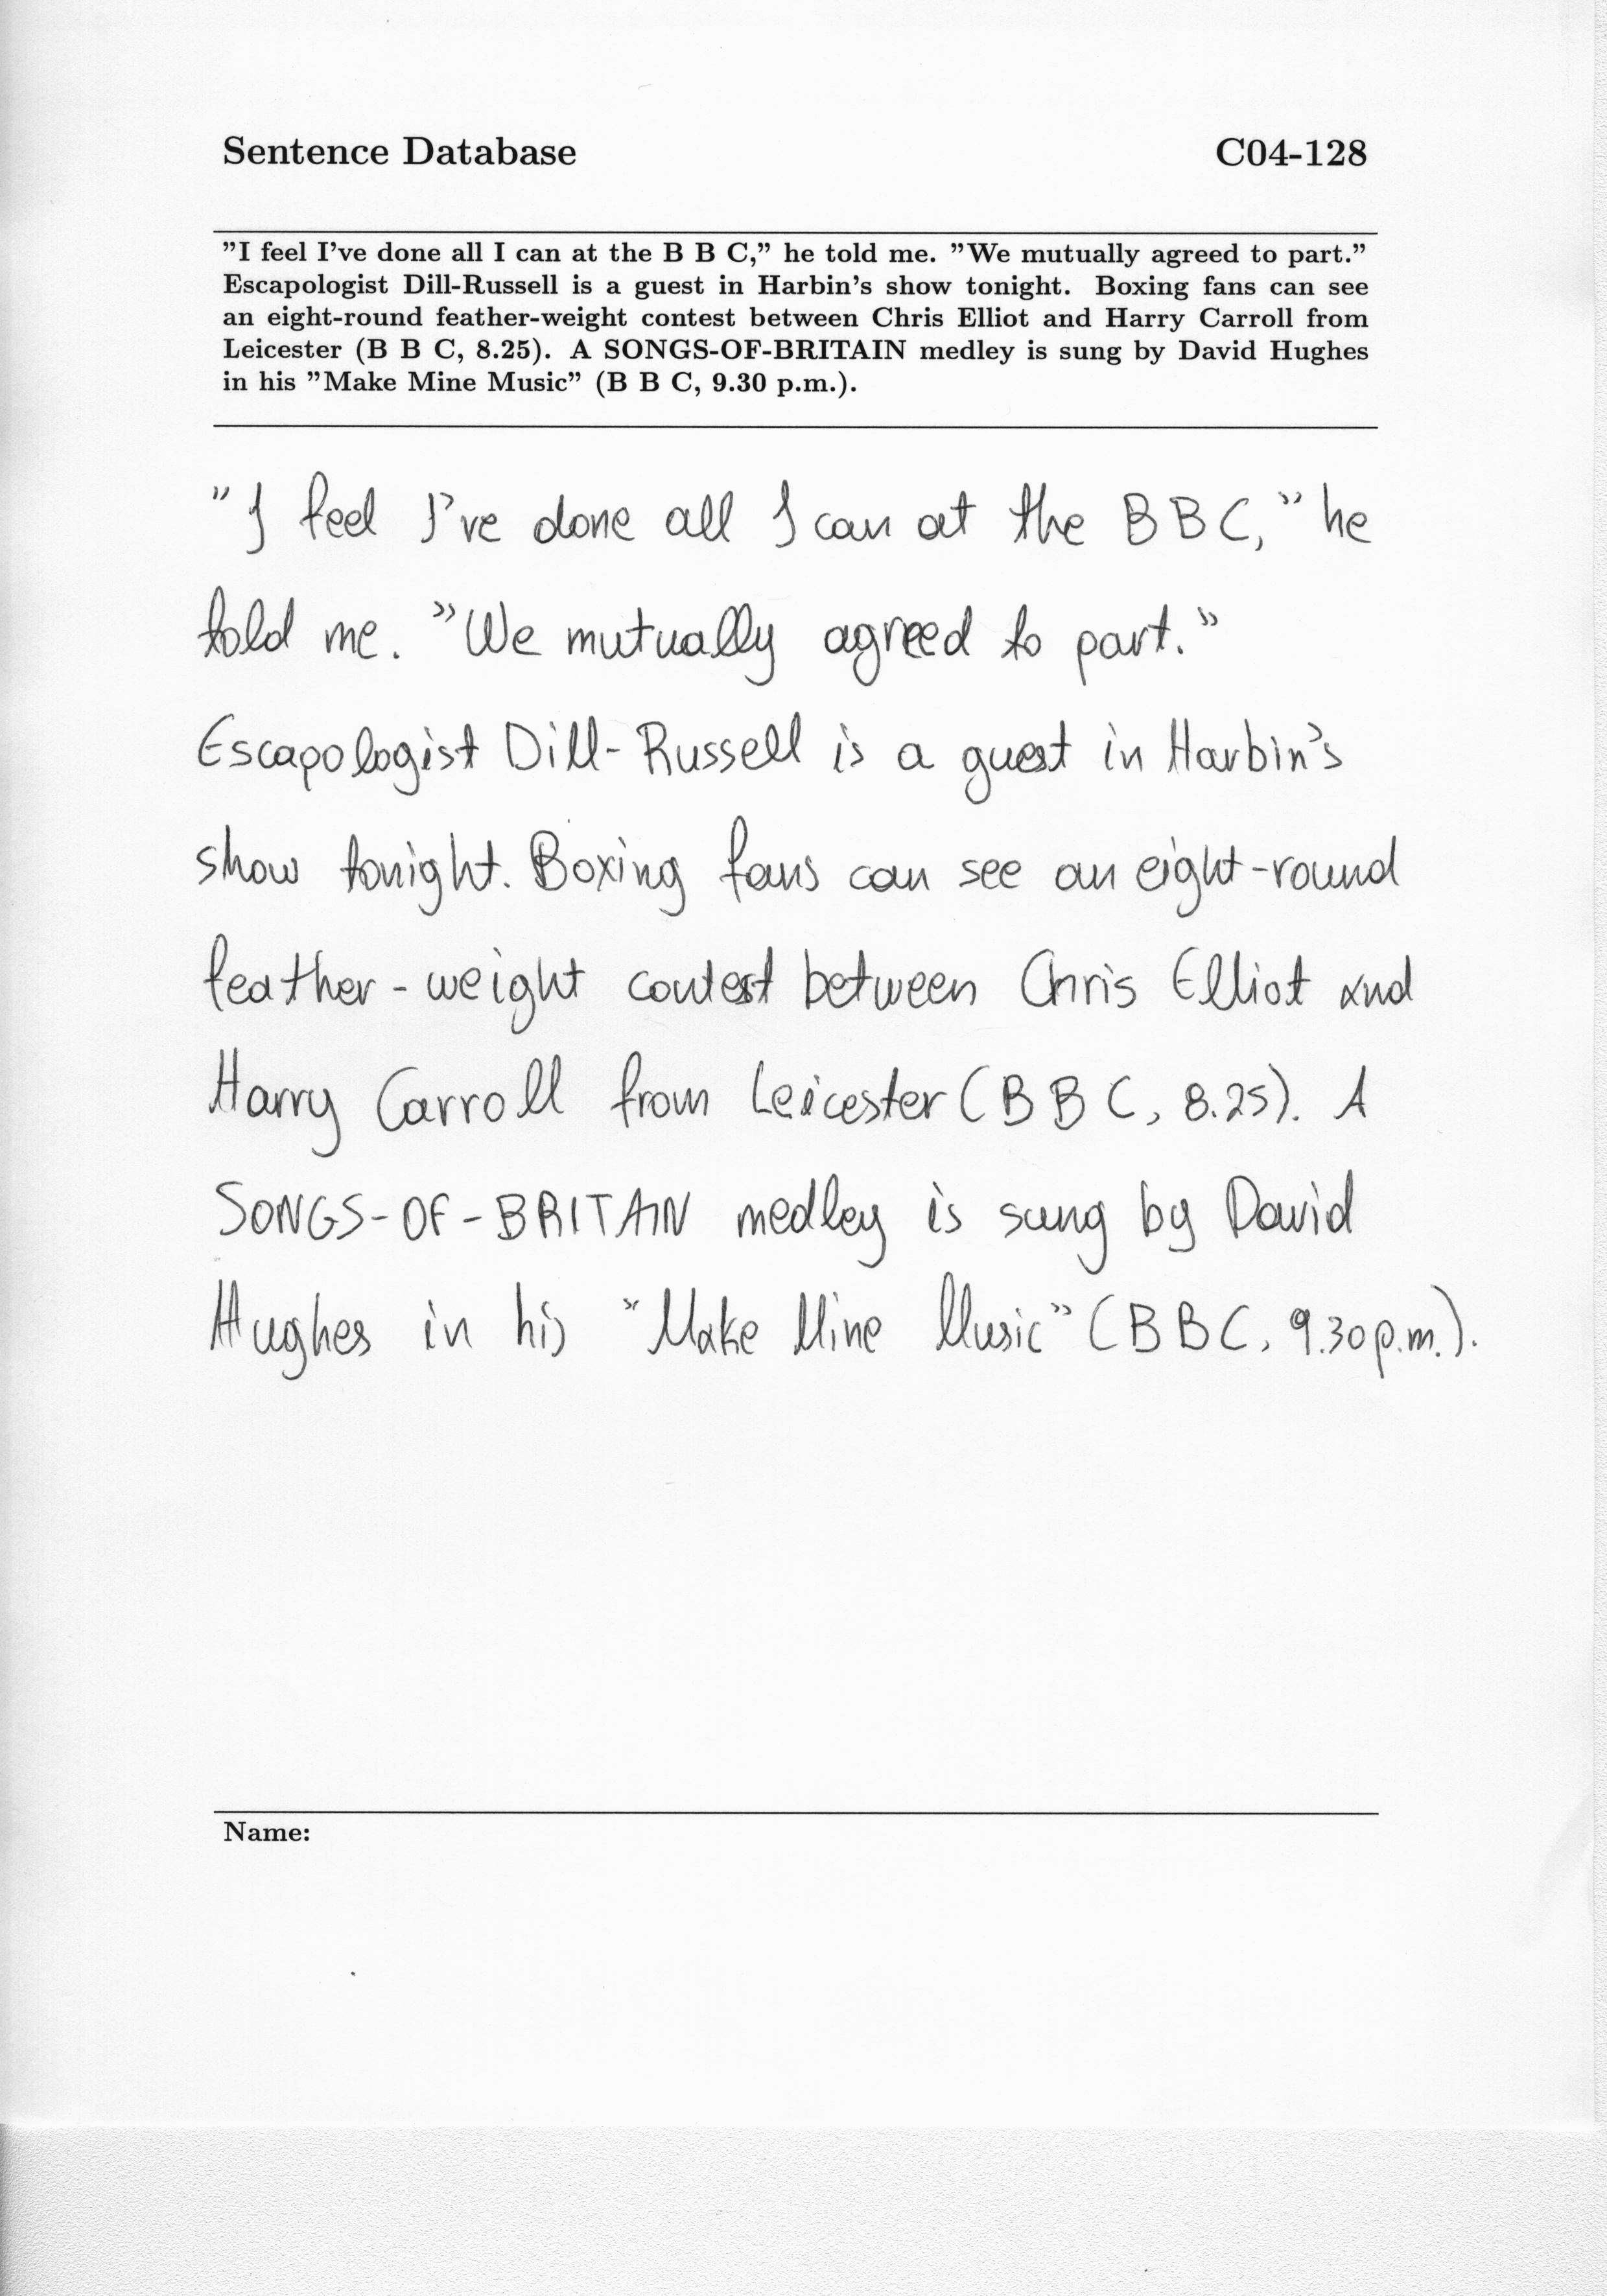 Sentence Database C04-128
"I feel I've done all I can at the B B C," he told me. "We mutually agreed to part."
Escapologist Dill-Russell is a guest in Harbin's show tonight. Boxing fans can see
an eight-round feather-weight contest between Chris Elliot and Harry Carroll from
Leicester (B B C, 8.25). A SONGS-OF-BRITAIN medley is sung by David Hughes
in his "Make Mine Music" (B B C, 9.30 p.m.).
"I feel I've done all I can at the B B C," he
told me. "We mutually agreed to part."
Escapologist Dill-Russell is a guest in Harbin's
show tonight. Boxing fans can see an eight-round
feather-weight contest between Chris Elliot and
Harry Carroll from Leicester (B B C, 8.25). A
SONGS-OF-BRITAIN medley is sung by David
Hughes in his "Make Mine Music" (B B C, 9.30 p.m.).
Name: